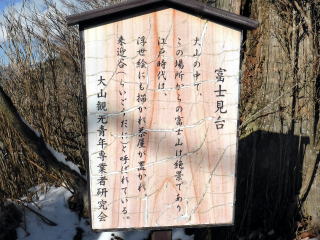 富士見台
大山の中で、
この場所からの富士山は絶景であり
江戸時代は、
浮世絵にも描かれ茶屋が置かれ
来迎谷(らいごうだに)と呼ばれている。
大山観光青年専業者研究会